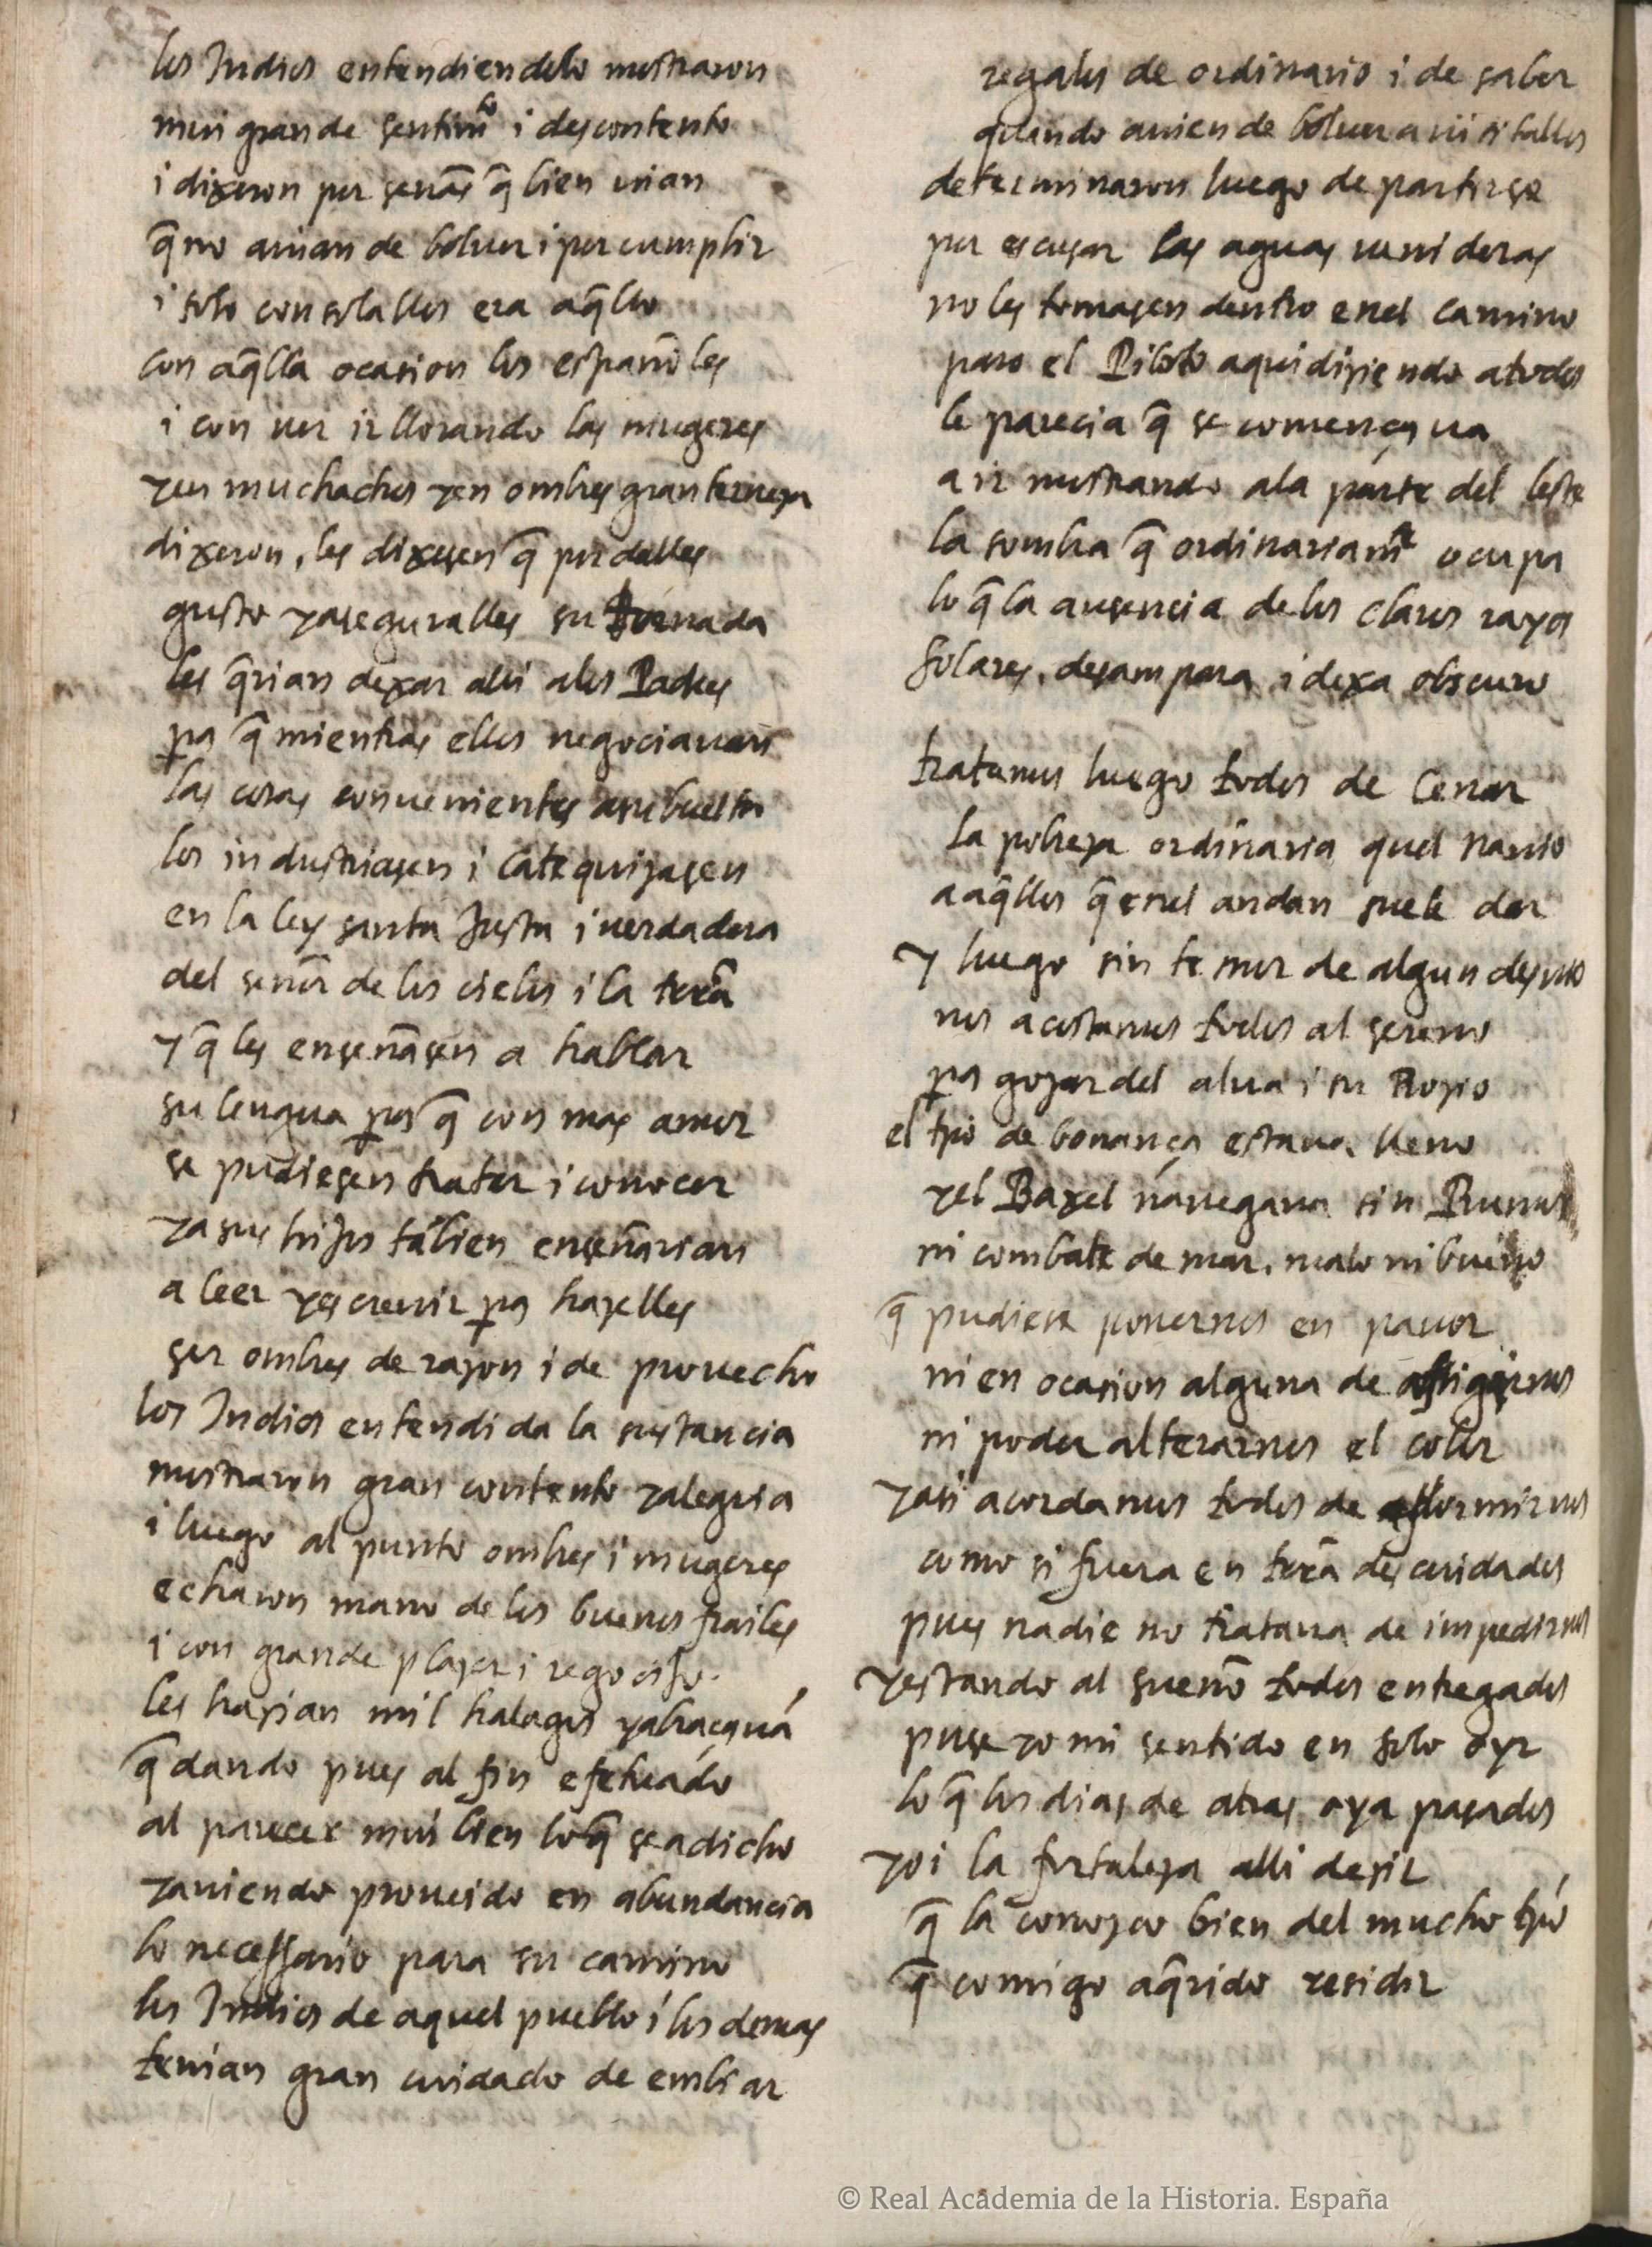 los Indios entendiendolo mostraron
mui grande sentimto i descontento
i dixeron por señas q̃ bien uian
q̃ no auian de boluer i por cumplir
i solo consolallos era aq̃llo
con aq̃lla ocasion los españoles
i con uer ir llorando las mugeres
y en muchachos y en ombres gran terneza
dixeron, les dixesen q̃ por dalles
gusto y aseguralles su tornada
les q̃rian dexar alli a los Padres
pa q̃ mientras ellos negociauan
las cosas conuenientes a su buelta
los industriasen i catequizasen
en la ley santa Justa i uerdadera
del señor de los cielos i la terã
y q̃ les enseñasen a hablar
su lengua pa q̃ con mas amor
se pudiesen tratar i conocer
y a sus hijos tãbien enseñarian
a leer y escreuir pa hazelles
ser ombres de razon i de prouecho
los Indios entendida la sustancia
mostraron gran contento y alegria
i luego al punto ombres i mugeres
echaron mano de los buenos frailes
i con grande plazer i regocijo.
les hazian mil halagos y abraçauã
q̃dando pues al fin efetuado
al parecer mui bien lo q̃ se a dicho
y auiendo proueido en abundancia
lo necessario para su camino
los Indios de aquel pueblo i los demas
tenian gran cuidado de embiar
regalos de ordinario i de saber
quando auien de boluer a uisitallos
determinaron luego de partirse
por escusar las aguas uenideras
no les tomasen dentro en el camino
paro el Piloto aqui diziendo a todos
le parecia q̃ se començaua
a ir mostrando a la parte del leste
la sombra q̃ ordinariamte ocupa
lo q̃ la ausencia de los claros rayos
solares, desampara i dexa obscuro
tratamos luego todos de cenar
la pobreza ordinaria quel nauio
a aq̃llos q̃ enel andan suele dar
y luego sin temor de algun desuio
nos acostamos todos al sereno
pa gozar del alua i su Rozio
el tpo de bonança estaua lleno
y el Baxel nauegaua sin Rumor
ni combate de mar, malo ni bueno
q̃ pudiese ponernos en pauor
ni en ocasion alguna de afligirnos
ni poder alterarnos el color
y asi acordamos todos de dormirnos
como si fuera en terã descuidados
pues nadie no trataua de impedirnos
y estando al sueño todos entregados
puse yo mi sentido en solo oyr
lo q̃ los dias de atras oya pasados
y oi la fortaleza alli dezir
q̃ la conozco bien del mucho tpo
q̃ comigo a q̃rido residir
© Real Academia de la Historia. España